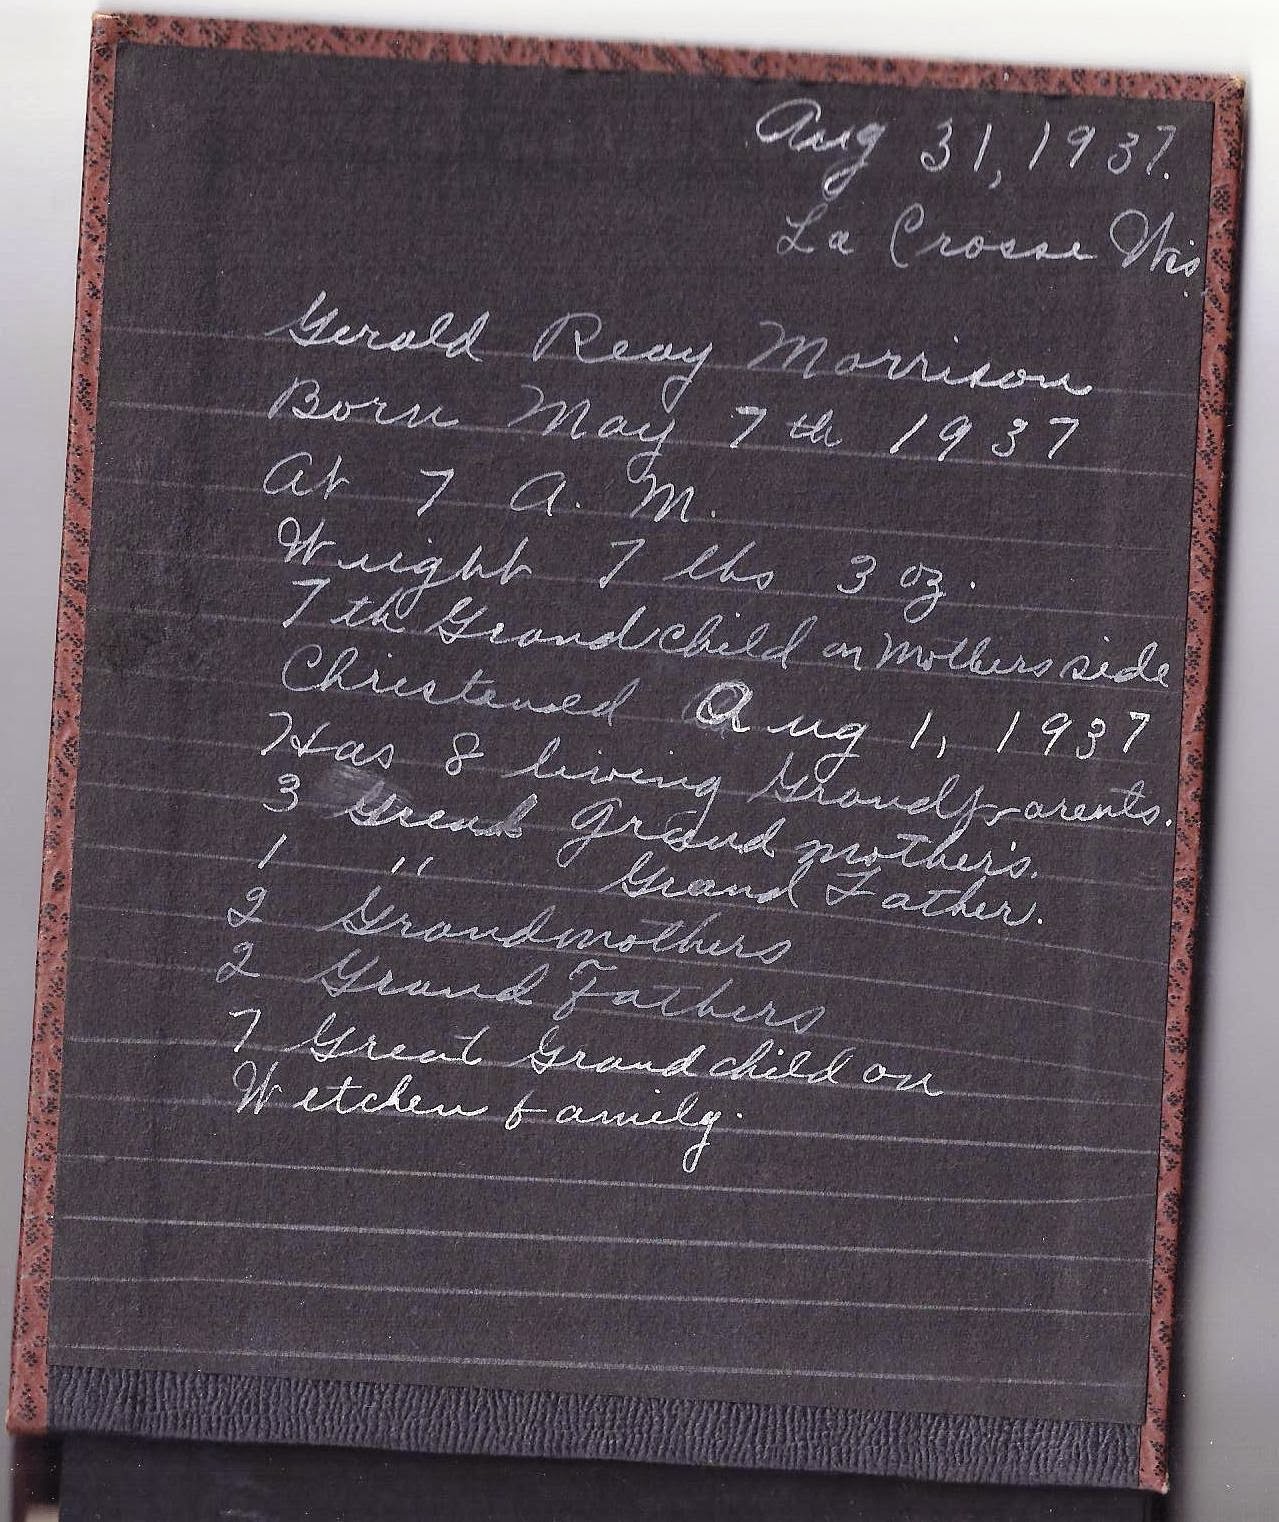 Aug 31, 1937.
La Crosse Wis.
Gerald Reay Morrison
Born May 7th 1937
At 7 A. M.
Weight 7 lbs 3 oz.
7th Grandchild on Mothers side
Christened Aug 1, 1937
Has 8 living Grandparents.
3 Great Grand mothers.
1 " Grand Father.
2 Grandmothers
2 Grand Fathers
7 Great Grandchild on
Wetchen family.